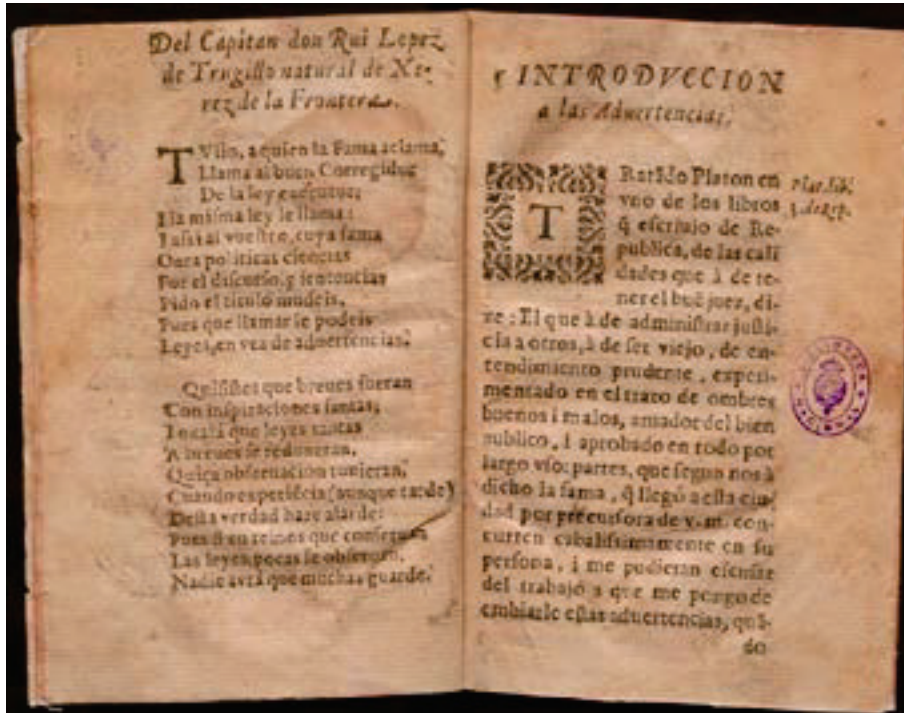 Del Capitan don Rui Lopez
de Trugillo natural de Xe-
rez de la Frontera.
TVlio, a quien la Fama aclama,
Llama al buen Corregidor
De la ley
I la misma ley le llama:
I assi al vuestro, cuya fama
politicas ciencias
Por el discurso, i sentencias
Pido el titulo mudeis,
Pues que llamarse podeis
Leyes, en vez de aduertencias.
Quisistes que breues fueran
Con inspiraciones santas,
que leyes tantas
A breues se reduxeran.
Quiça obseruacion tunieran,
Cuando experiẽcia (aunque tarde)
Desta verdad haze alarde:
Pues si en reinos que
Las leyes pocas se
Nadie avrá que muchas guarde.
INTRODVCCION
a las Aduertencias.
TRatãdo Platon en
vno de los libros
q̃ escriuio de Re-
publica, de las cali
dades que à de te-
ner el buẽ juez, di-
ze: El que à de administrar justi-
cia a otros, à de ser viejo, de en-
tendimiento prudente, experi-
mentado en el trato de ombres
buenos i malos, amador del bien
publico, i aprobado en todo por
largo vso: partes, que segun nos à
dicho la fama, q̃ llegó a esta ciu-
dad por precursora de v.m. con-
curren cabalissimamente en su
persona, i me pudieran escusar
del trabajo a que me pongo de
embiarle estas aduertencias, quã-
do
Plat. lib.
3. de Rep.